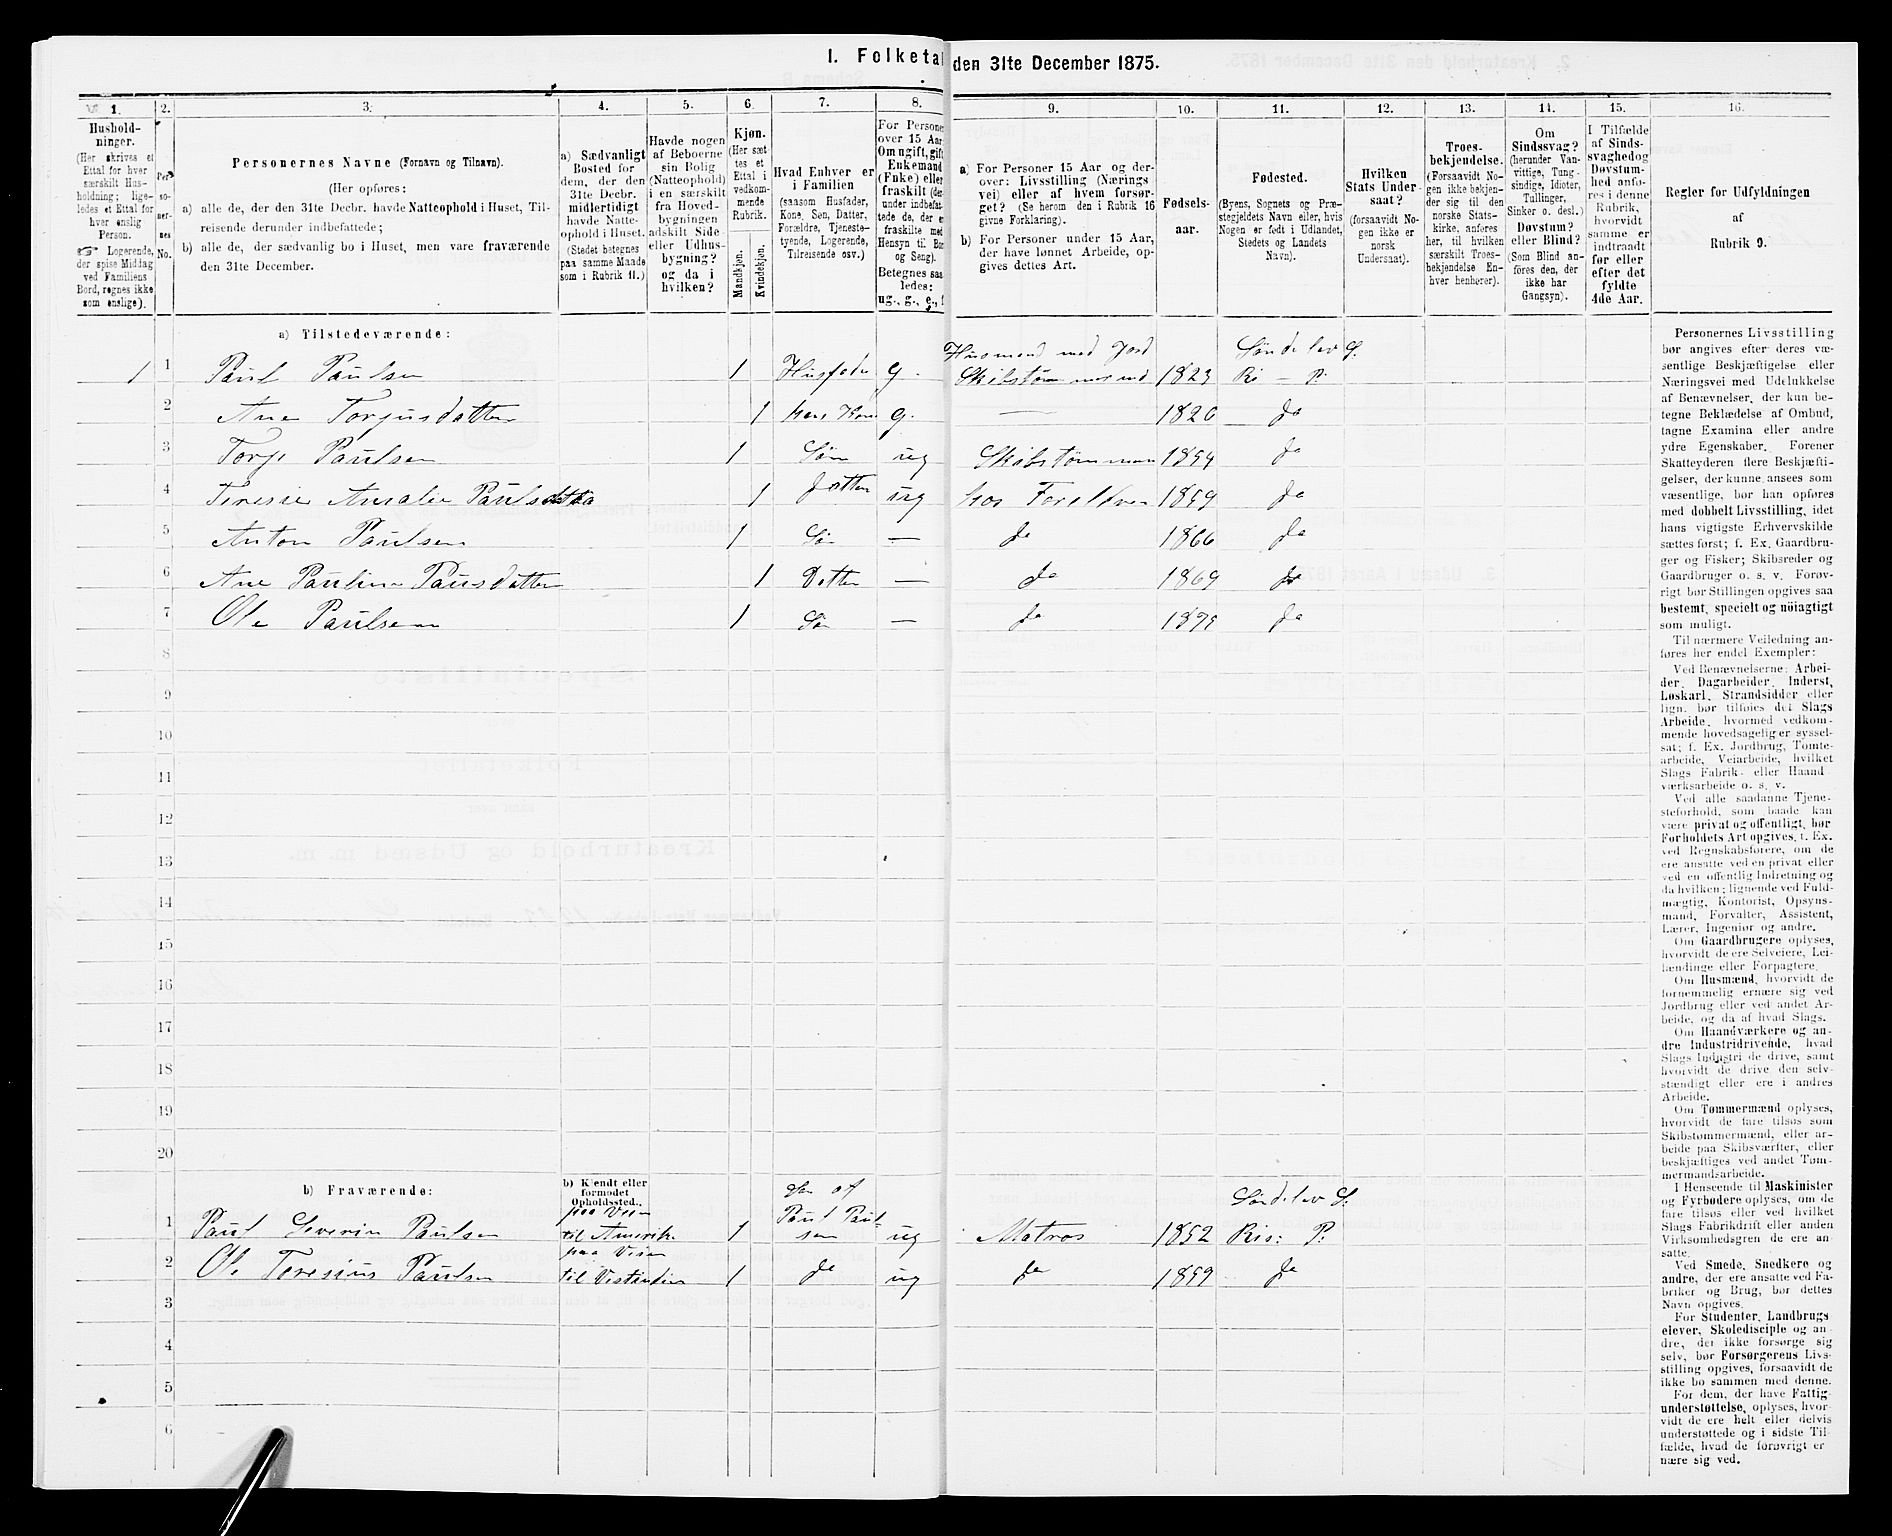 I. Folketal den 31te December 1875.
1. 2. 3. 4. 5. 6. 7. 8. 9. 10. 11. 12. 13. 14. 15. 16.
Hushold-
ninger.
(Her skrives et
Ettal for hver
særskilt Hus-
holdning; lige-
ledes et Ettal for
hver enslig
Person.
☞ Logerende,
der spise Middag
ved Familiens
Bord, regnes ikke
som enslige).
Per-
so-
ner-
nes
No.
Personernes Navne (Fornavn og Tilnavn).
(Her opføres:
a) alle de, der den 31te Decbr. havde Natteophold i Huset, Til-
reisende derunder indbefattede;
b) alle de, der sædvanlig bo i Huset, men vare fraværende
den 31te December.
a) Sædvanligt
Bosted for
dem, der den
31te Decbr.
midlertidigt
havde Natte-
ophold i Huset.
(Stedet betegnes
paa samme Maade
som i Rubrik 11.)
Havde nogen
af Beboerne
sin Bolig
(Natteophold)
i en særskilt
fra Hoved-
bygningen
adskilt Side-
eller Udhus-
bygning?
og da i
hvilken?
Kjøn.
(Her sæt-
tes et
Ettal i
vedkom-
mende
Rubrik.
Mandkjøn.
Kvindekjøn.
Hvad Enhver er
i Familien
(saasom Husfader,
Kone, Søn, Datter,
Forældre, Tjeneste-
tyende, Logerende,
Tilreisende osv.)
For Persone
over 15 Aar
Om ugift, gift
Enkemand
(Enke) eller
fraskilt (der-
under indbefat-
tede de, der e
fraskilte med
Hensyn til Bor
og Seng).
Betegnes saa
ledes:
ug., g., e., f
a) For Personer 15 Aar og der-
over: Livsstilling (Nærings-
vei) eller af hvem forsør-
get? (Se herom den i Rubrik 16
givne Forklaring).
b) For Personer under 15 Aar,
der have lønnet Arbeide, op-
gives dettes Art.
Fødsels-
aar.
Fødested.
(Byens, Sognets og Præ-
stegjeldets Navn eller, hvis
Nogen er født i Udlandet,
Stedets og Landets
Navn).
Hvilken
Stats Under-
saat?
(forsaavidt No-
gen ikke er
norsk
Undersaat).
Troes-
bekjendelse.
(Forsaavidt No-
gen ikke bekjen-
der sig til den
norske Stats-
kirke, anføres
her, til hvilken
særskilt Troes-
bekjendelse En-
hver henhører).
Om
Sindssvag?
(herunder Van-
vittige, Tung-
sindige, Idioter,
Tullinger,
Sinker o. desl.)
Døvstum?
eller Blind?
(Som Blind an-
føres den, der
ikke har
Gangsyn).
I Tilfælde
af Sinds-
svaghed og
Døvstum-
hed anfø-
res i denne
Rubrik,
hvorvidt
samme er
indtraadt
før eller
efter det
fyldte
4de Aar.
Regler for Udfyldningen
af
Rubrik 9.
a) Tilstedeværende:
Husmand med Jord Søndelev S.
1 1 Paul Paulsen 1 Husfader g. Skibstømmermd 1823 Ris P.
2 Ane Torjusdatter 1 hans Kone g. — 1826 do
3 Torje Paulsen 1 Søn ug Skibstømman 1854 do
4 Teresie Amalie Paulsdatter 1 Datter ug hos Foreldren 1859 do
5 Anton Paulsen 1 Søn — do 1866 do
6 Ane Pauline Paulsdatter 1 Datter — do 1869 do
7 Ole Paulsen 1 Søn — do 1875 do
8
9
10
11
12
13
14
15
16
17
18
19
20
b) Fraværende:
b) Kjendt eller
formodet
Opholdssted.
paa Veien Søn af Søndelev S.
1 Paul Severin Paulsen til Amerika 1 Paul Paulsen ug Matros 1852 Ris: P.
paa Veien
2 Ole Teresius Paulsen til Vestindien 1 do ug do 1859 do
3
4
5
6
Personernes Livsstilling
bør angives efter deres væ-
sentlige Beskjæftigelse eller
Næringsvei med Udelukkelse
af Benævnelser, der kun be-
tegne Beklædelse af Ombud,
tagne Examina eller andre
ydre Egenskaber. Forener
Skatteyderen flere Beskjæfti-
gelser, der kunne ansees som
væsentlige, bør han opføres
med dobbelt Livsstilling, idet
hans vigtigste Erhvervskilde
sættes først; f. Ex. Gaardbru-
ger og Fisker; Skibsreder og
Gaardbruger o. s. v. Forøv-
rigt bør Stillingen opgives saa
bestemt, specielt og nöiagtigt
som muligt.
Til nærmere Veiledning an-
føres her endel Exempler:
Ved Benævnelserne: Arbei-
der, Dagarbeider, Inderst,
Løskarl, Strandsidder eller
lign. bør tilføies det Slags
Arbeide, hvormed vedkom-
mende hovedsagelig er syssel-
sat; f. Ex. Jordbrug, Tomte-
arbeide, Veiarbeide, hvilket
Slags Fabrik- eller Haand-
værksarbeide o. s. v.
Ved alle saadanne Tjene-
steforhold, som baade kan
være privat og offentligt, bør
Forholdets Art opgives, f. Ex.
ved Regnskabsførere, om de
ere ansatte ved en privat eller
ved en offentlig Indretning og
da hvilken; lignende ved Fuld-
mægtig, Kontorist, Opsyns-
mand, Forvalter, Assistent,
Lærer, Ingeniør og andre.
Om Gaardbrugere oplyses,
hvorvidt de ere Selveiere, Lei-
lændinge eller Forpagtere.
Om Husmænd, hvorvidt de
fornemmelig ernære sig ved
Jordbrug eller ved andet Ar-
beide, og da af hvad Slags.
Om Haandværkere og an-
dre Industridrivende, hvad
Slags Industri de drive, samt
hvorvidt de drive den selv-
stændigt eller ere i andres
Arbeide.
Om Tømmermænd oplyses,
hvorvidt de fare tilsøs som
Skibstømmermænd, eller ar-
beide paa Skibsværfter, eller
beskjæftiges ved andet Tøm-
mermandsarbeide.
I Henseende til Maskinister
og Fyrbødere oplyses, om de
fare tilsøs eller ved hvilket
Fabrikdrift eller anden
Virksomhedsgren de ere an-
satte.
Ved Smede, Snedkere og
andre, der ere ansatte ved Fa-
briker og Brug, bør dettes
Navn opgives.
For Studenter, Landbrugs-
elever, Skoledisciple og an-
dre, der ikke forsørge sig
selv, bør Forsørgerens Livs-
stilling opgives, forsaavidt de
ikke bo sammen med denne.
For dem, der have Fattig-
understøttelse, oplyses, hvor-
vidt de ere helt eller delvis
understøttede og i sidste Til-
fælde, hvad de forøvrigt er
nære sig ved.